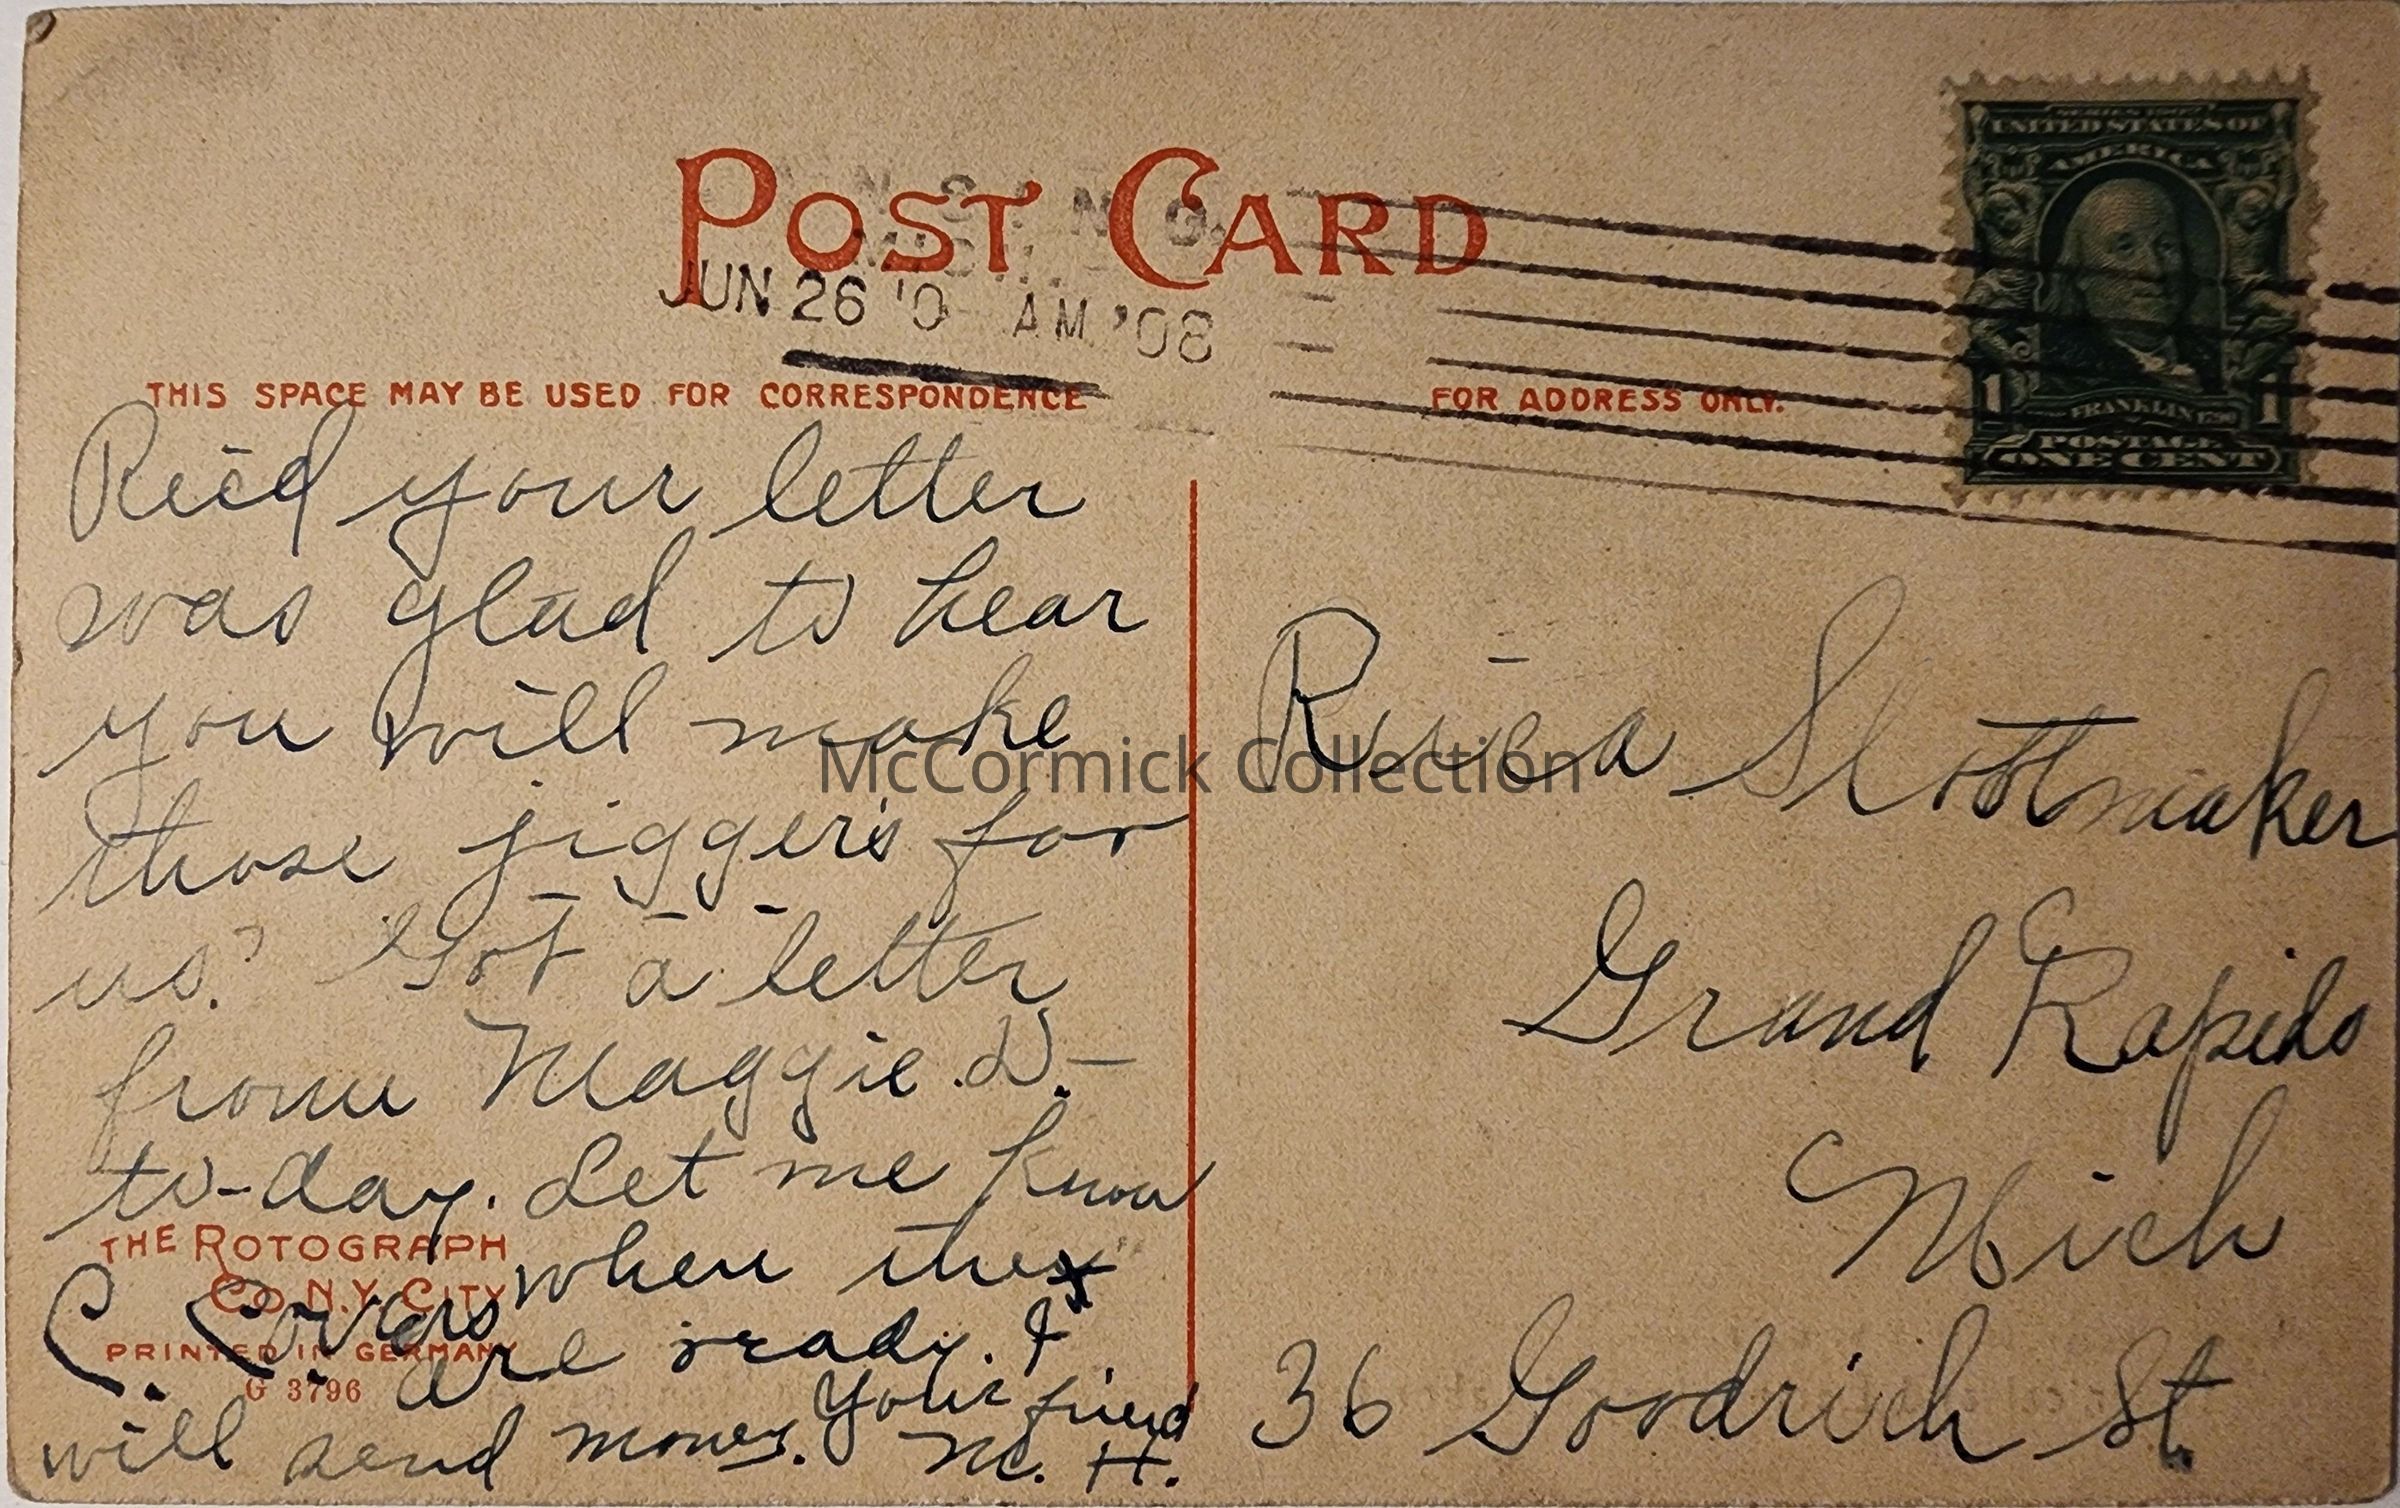 POST CARD
JUN 26 '0 AM '08
THIS SPACE MAY BE USED FOR CORRESPONDENCE
FOR ADDRESS ONLY.
SERIES 1902
UNITED STATES OF
AMERICA
1 FRANKLIN 1790 1
POSTAGE
ONE CENT
Rec'd your letter
was glad to hear
you will make
those jigger's for
us? Got a letter
from Maggie D.-
to-day. Let me know
when they
are ready. I
will send money. Your friend
M. H.
THE ROTOGRAPH
CO. N.Y. CITY
PRINTED IN GERMANY
G 3796
Slootmaker
Grand Rapids
Mich
36 Goodrich St.
McCormick Collection